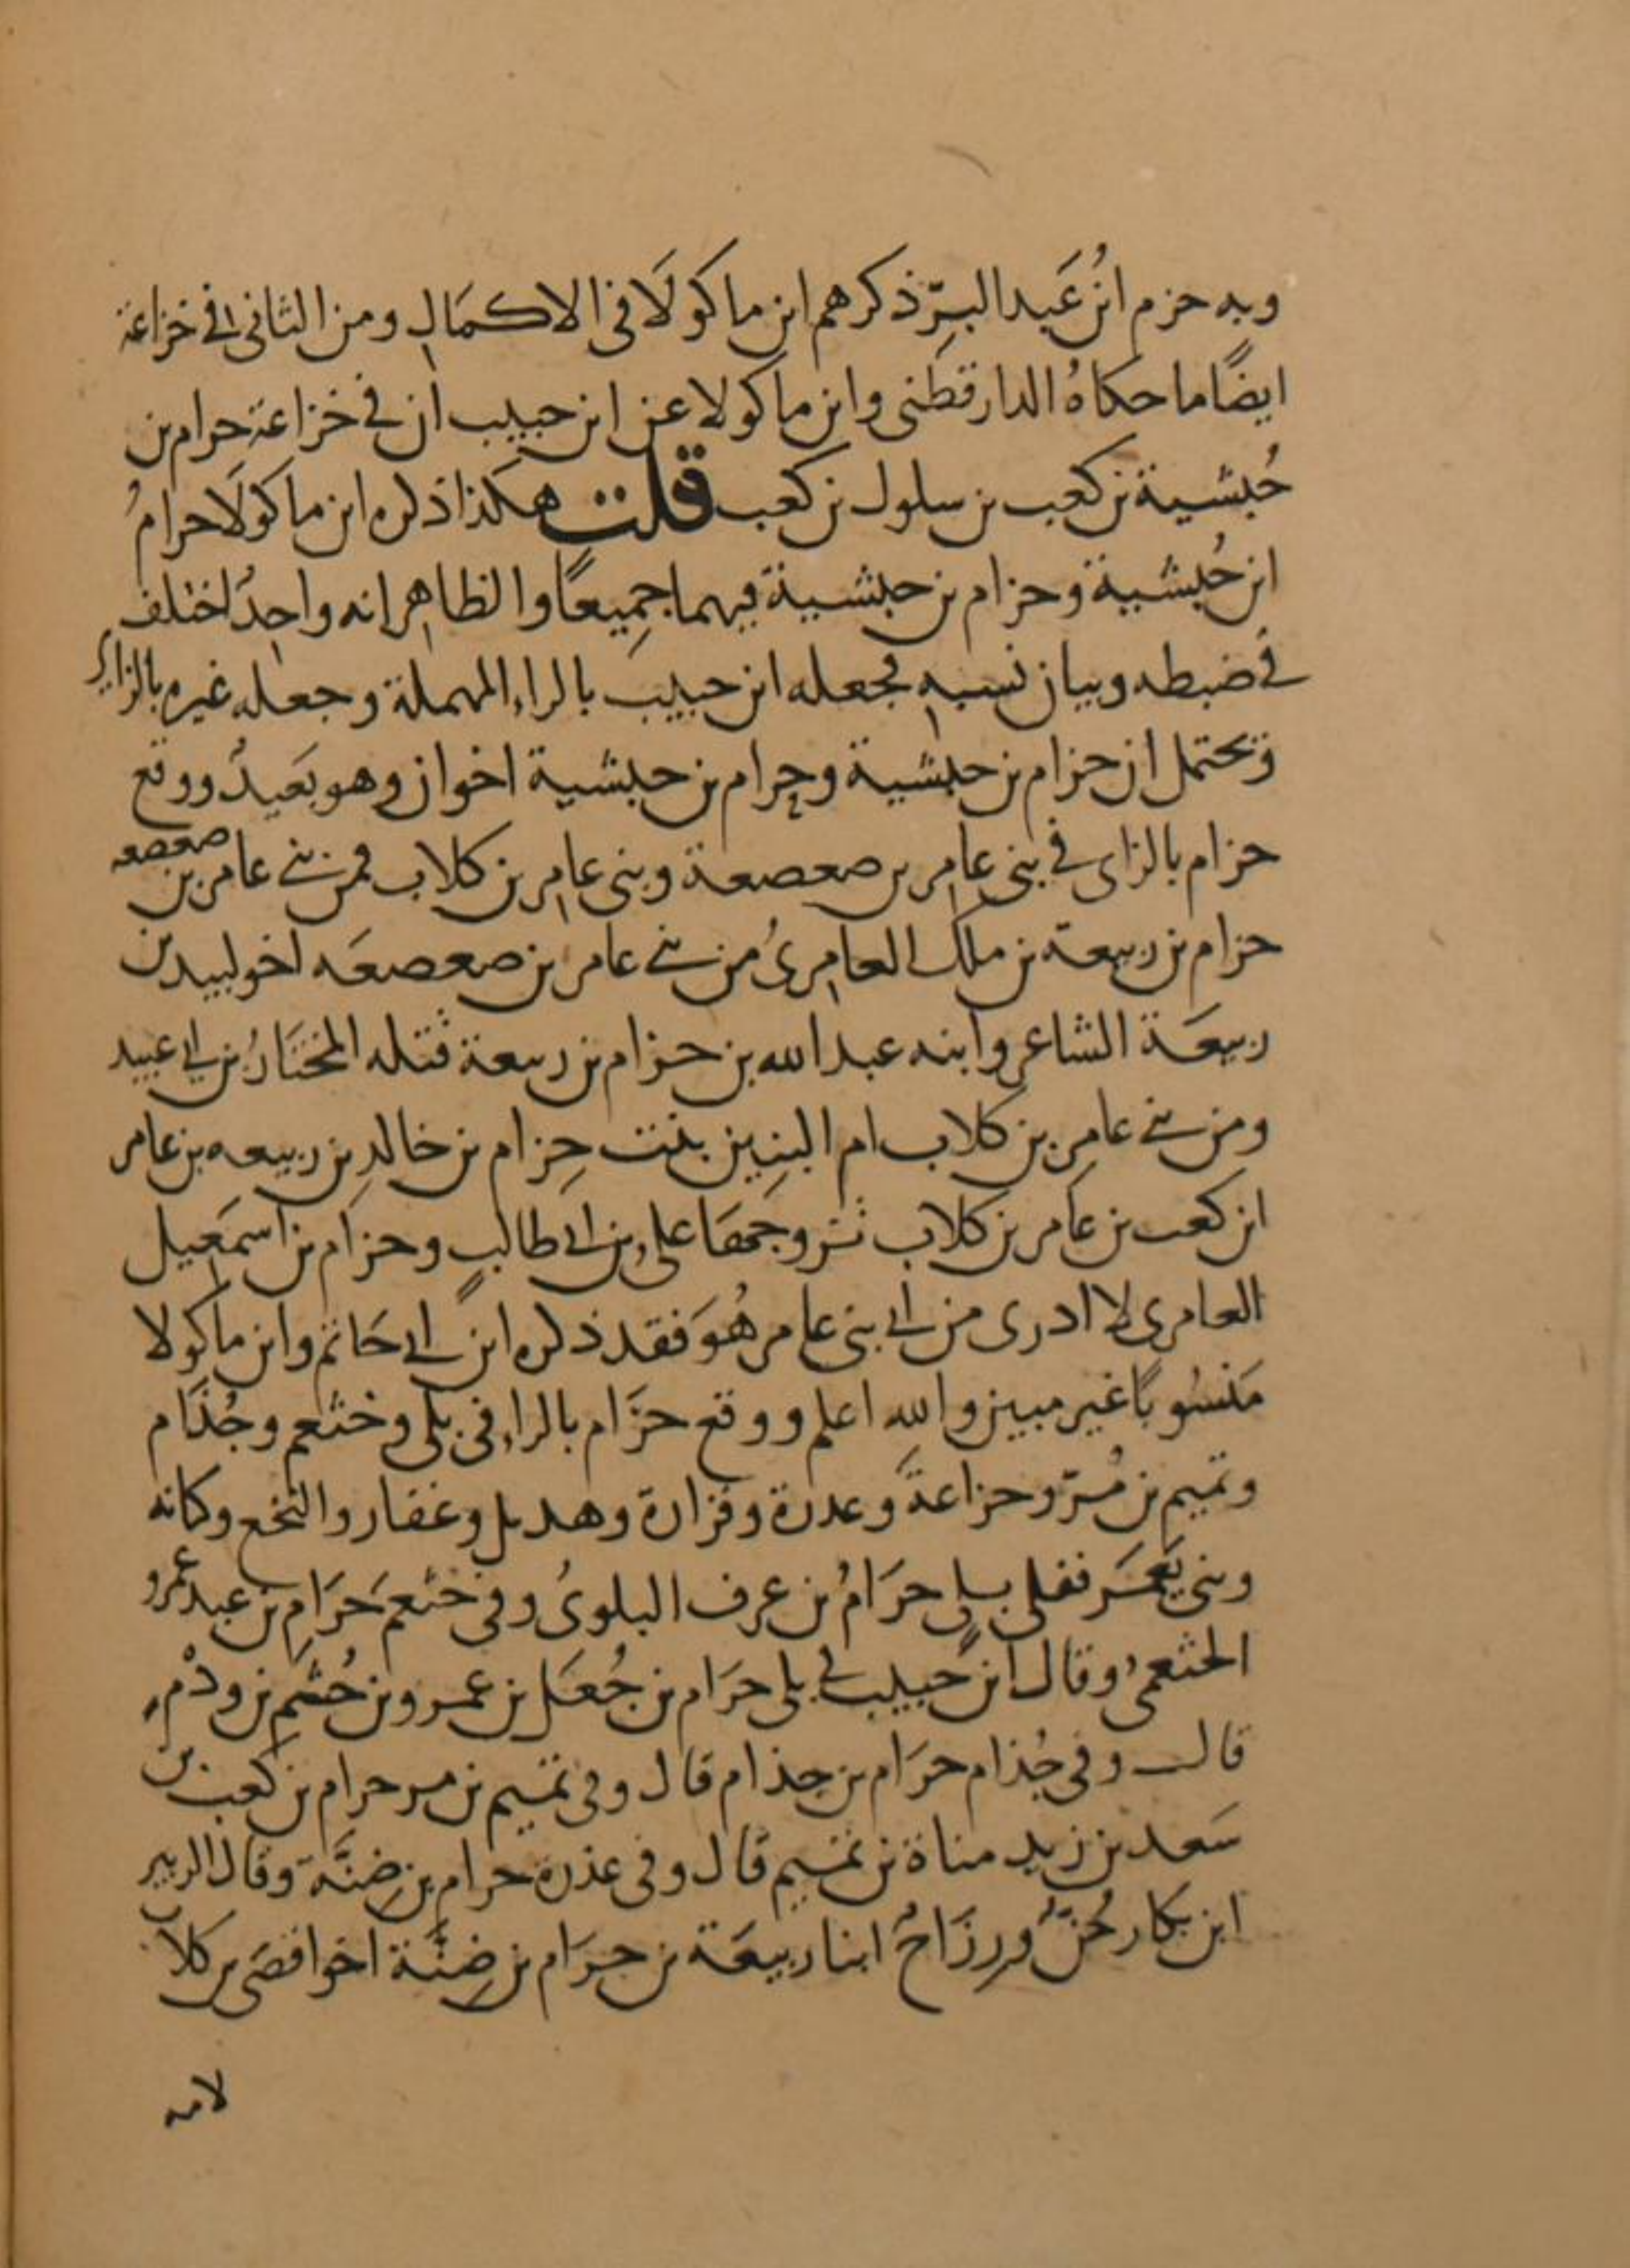 وبه حزم ابنُ عَبد البرّ ذكرهم ابن ماكولَا في الاكمَال ومن الثاني في خزاعة
ايضًا ما حكاهُ الدارقطني وابن ماكولا عن ابن حبيب ان في خزاعة حرام بن
حُبشية بن كعب بن سلول بن كعب قلت هكذا ذكره ابن ماكولَا حرامُ
ابن حُبشية وحزام بن حبشية فيهما جميعًا والظاهر انه واحدٌ اختلف
في ضبطه وبيان نسبه فجعله ابن حبيب بالراء المهملة وجعله غيره بالزاي
ويحتمل ان حزام بن حبشية وحرام بن حبشية اخوان وهو بَعيدٌ ووقع
حزام بالزاى في بنى عامر بن صعصعة وبنى عامر بن كلاب فمن بني عامر بن صعصعه
حزام بن ربيعة بن ملك العامرىُ من بني عامر بن صعصعَه اخو لبيد بن
ربيعَة الشاعر وابنه عبد الله بن حزام بن ربيعة قتله المختَارُ بن ابي عبيد
ومن بني عامر بن كلاب ام البنين بنت حِزام بن خالدِ بن ربيعه بن عامر
ابن كعب بن عَامر بن كلاب تزوجَهَا على بن ابي طالبٍ وحزام بن اسمَعيل
العامرى لا ادرى من اي بنى عامر هُوَ فقد ذكره ابن ابي حَاتم وابن ماكولا
مَنسُوبًا غير مبين والله اعلم ووقع حرَام بالراء في بلى وخثعم وجُذَام
وتميم بن مُرّ وخزاعةَ وعذرة وفزارة وهذيل وغفار والنخع وكنانه
وبني يَعمَر ففي بلى حرَامُ بن عرف البلوىُ وفي خثعمَ حَرَامِ بن عبد عمرو
الخثعمىُ وقال ابن حَبيب في بلى حرَام بن جُعَل بن عمرو بن جُشَم بن ودْم
قال وفى جُذام حرَام بن جذام قال وفى تميم بن مر حرام بن كعب بن
سَعد بن زيد مناة بن تميم قال وفى عذرة حرام بن ضِنَّة وقال الزبير
ابن بكار حُنُّ ورِزَاحُ ابنا ربيعَة بن حرَام بن ضِنَّة اخوا قصَى بن كلاب
لامه